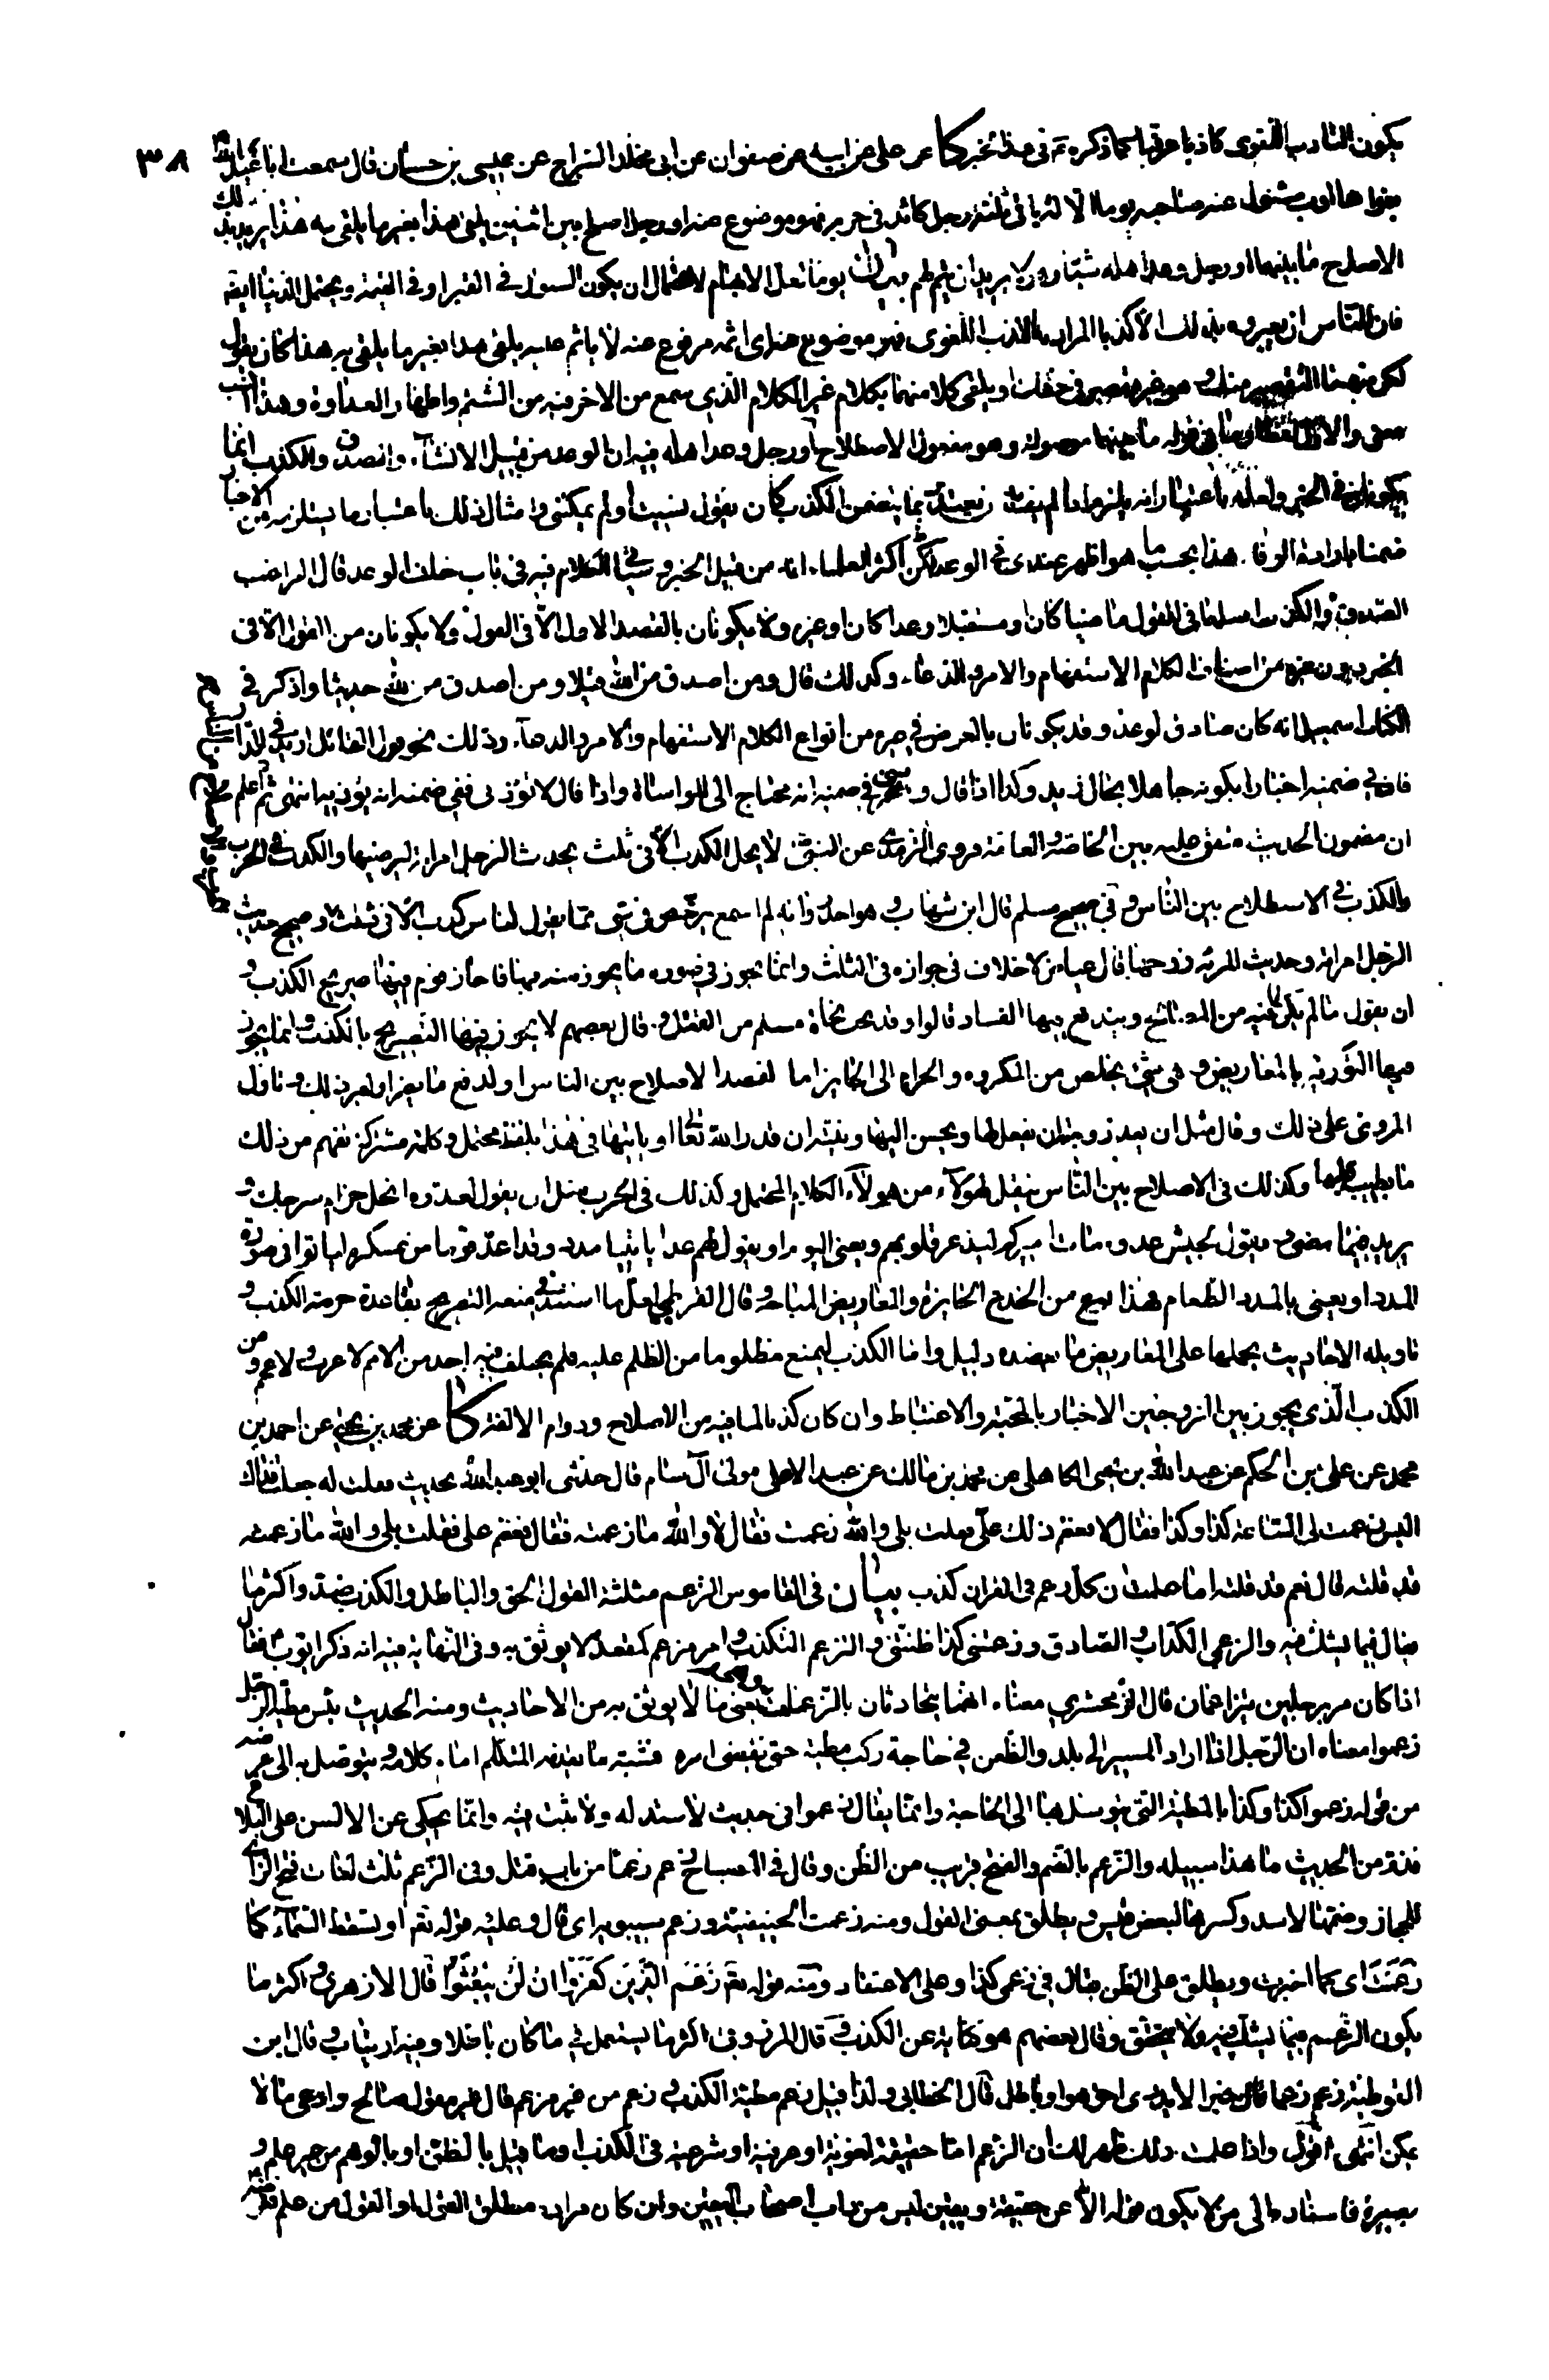 ٣٨
يكون التأدب اللغوي كاذبا عرفيا كما ذكره في هذا الخبر كا عن علي عن ابيه عن صفوان عن ابي مخلد السراج عن عيسى بن حسان قال سمعت ابا عبد الله
يقول كل كذب مسئول عنه صاحبه يوما الا في ثلثة رجل كائد في حربه فهو موضوع عنه او رجل اصلح بين اثنين يلقى هذا بغير ما يلقى به هذا يريد بذلك
الاصلاح ما بينهما او رجل وعد اهله شيئا وهو لا يريد ان يتم لهم بيان يوما لعل الابهام لاحتمال ان يكون السؤال في القبر او في القيمة ويحتمل الدنيا ايضا
فان الناس ان يعيروه بذلك الا كذبا المراد به الكذب اللغوي فهو موضوع عنه اي اثمه مرفوع عنه لا ياثم عليه يلقى هذا بغير ما يلقى به هذا كان يقول
لكل منهما التقصير منك وهو غير مقصر في حقك او يلقى كلا منهما بكلام غير الكلام الذي سمع من الاخر فيه من الشتم واظهار العداوة وهذا انسب
معنى والاول لفظا وما في قوله ما بينهما موصولة وهو مفعول الاصلاح او رجل وعد اهله فيه ان الوعد من قبيل الانشاء والصدق والكذب انما
يكونان في الخبر ولعله باعتبار انه يلزمه اذا لم يفعل ان يعتذر بما يتضمن الكذب كأن يقول نسيت او لم يمكنني وامثال ذلك باعتبار ما يستلزمه من الاخبار
ضمنا بارادة الوفاء هذا بحسب ما هو اظهر عندي في الوعد لكن اكثر العلماء انه من قبيل الخبر وسيأتي الكلام فيه في باب خلف الوعد قال الراغب
الصدق والكذب اصلهما في القول ماضيا كان او مستقبلا وعدا كان او غيره ولا يكونان بالقصد الاول الا في القول ولا يكونان من القول الا في
الخبر دون غيره من اصناف الكلام الاستفهام والامر والدعاء وكذلك قال ومن اصدق من الله قيلا ومن اصدق من الله حديثا واذكر في
الكتاب اسمعيل انه كان صادق الوعد وقد يكونان بالعرض في غيره من انواع الكلام الاستفهام والامر والدعاء وذلك نحو قول القائل ازيد في الدار
فان في ضمنه اخبارا بكونه جاهلا بحال زيد وكذا اذا قال واسني في ضمنه انه محتاج الى المواساة واذا قال لا تؤذني ففي ضمنه انه يؤذيه انتهى ثم اعلم
ان مضمون الحديث متفق عليه بين الخاصة والعامة فروى الترمذي عن النبي لا يحل الكذب الا في ثلث يحدث الرجل امرأته ليرضيها والكذب في الحرب
والكذب في الاصطلاح بين الناس وفي صحيح مسلم قال ابن شهاب وهو احد رواته لم اسمع يرخص في شئ مما يقول الناس كذب الا في ثلث وصح حديث
الرجل امرأته وحديث المرئة زوجها قال عياض لا خلاف في جوازه في الثلث وانما يجوز في صورة ما يجوز منه فيها فاجاز قوم فيها صريح الكذب و
ان يقول ما لم يكن لما فيه من المصالح ويندفع فيها الفساد قالوا وقد يجب لنجاة مسلم من القتل و قال بعضهم لا يجوز فيها التصريح بالكذب وانما يجوز
فيها التورية بالمعاريض وهي شئ يخلص من المكروه والحرام الى الجائز اما لقصد الاصلاح بين الناس او لدفع ما يضر او لغير ذلك وتأول
المروي على ذلك وقال مثل ان يعد زوجته ان يفعل لها ويحسن اليها ونيته ان قدر الله تعالى او ياتيها في هذا بلفظ محتمل وكلمة مشتركة تفهم من ذلك
ما يطيب قلبها وكذلك في الاصلاح بين الناس ينقل لهؤلاء من هؤلاء الكلام المحتمل وكذلك في الحرب مثل ان يقول لعدوه انحل حزام سرجك و
يريد فيما مضى ويقول لجيش عدوه مات اميركم ليذعر قلوبهم ويعني النوم او يقول لهم غدا ياتينا مدد وقد اعد قوما من عسكره لياتوا في صورة
المدد او يعني بالمدد الطعام فهذا نوع من الخدع الجايزة والمعاريض المباحة وقال القرطبي لعل ما استند في منعه التصريح بقاعدة حرمة الكذب و
تاويله الاحاديث بحملها على المعاريض ما يعضده دليل واما الكذب ليمنع مظلوما من الظلم عليه فلم يختلف فيه احد من الامم لا عرب ولا عجم ومن
الكذب الذي يجوز بين الزوجين الاخبار بالمحبة والاغتباط وان كان كذبا لما فيه من الاصلاح ودوام الالفة كا عن محمد بن يحيى عن احمد بن
محمد عن علي بن الحكم عن عبد الله بن يحيى الكاهلي عن محمد بن مالك عن عبد الاعلى مولى آل سام قال حدثني ابو عبد الله بحديث فقلت له جعلت فداك
اليس زعمت لي الساعة كذا وكذا فقال لا فعظم ذلك علي فقلت بلى والله زعمت فقال لا والله ما زعمته فقال فعظم علي فقلت بلى والله ما زعمته
قد قلته قال نعم قد قلته اما علمت ان كل زعم في القران كذب بيان في القاموس الزعم مثلثة القول الحق والباطل والكذب ضد واكثر ما
يقال فيما يشك فيه والزعمي الكذاب والصادق وزعمتني كذا ظننتني والتزعم التكذب وامر مزعم كمقعد لا يوثق به وفي النهاية فيه انه ذكر ايوب فقال
اذا كان مر برجلين يتزاعمان قال الزمخشري معناه انهما يتحادثان بالزعمات وهي ما لا يوثق به من الاحاديث ومنه الحديث بئس مطية الرجل
زعموا معناه ان الرجل اذا اراد المسير الى بلد والظعن في حاجة ركب مطية حتى تقضى امره فشبه ما يقدمه المتكلم امام كلامه ويتوصل به الى غرضه
من قوله زعموا كذا وكذا بالمطية التي يتوسل بها الى الحاجة وانما يقال زعموا في حديث لا سند له ولا ثبت فيه وانما يحكى عن الالسن على البلاغ
فذم من الحديث ما هذا سبيله والزعم بالضم والفتح قريب من الظن وقال في المصباح زعم زعما من باب قتل وفي الزعم ثلث لغات فتح الزاي
للحجاز وضمها لاسد وكسرها لبعض قيس ويطلق بمعنى القول ومنه زعمت الحنيفية وزعم سيبويه اي قال وعليه قوله تعم او تسقط السماء كما
زعمت اي كما اخبرت ويطلق على الظن يقال في زعمي كذا وعلى الاعتقاد ومنه قوله تعم زَعَمَ الَّذِينَ كَفَرُوا اَنْ لَنْ يُبْعَثُوا قال الازهري واكثر ما
يكون الزعم فيما يشك فيه ولا يتحقق وقال بعضهم هو كناية عن الكذب وقال المرزوقي اكثر ما يستعمل في ما كان باطلا او فيه ارتياب وقال ابن
القوطية زعم زعما قال خبرا لا يدرى احق هو او باطل قال الخطابي ولذا قيل زعم مطية الكذب وزعم من غير مزعم قال غير مقول صالح وادعى ما لا
يمكن انتهى اقول واذا علمت ذلك ظهر لك ان الزعم اما حقيقة لغوية او عرفية او شرعية في الكذب او ما قيل بالظن او بالوهم من غير علم و
بصيرة فاسناده الى من لا يكون قوله الا عن حقيقة ويقين ليس من باب اصحاب اليقين وان كان مراده مطلق القول او القول من علم